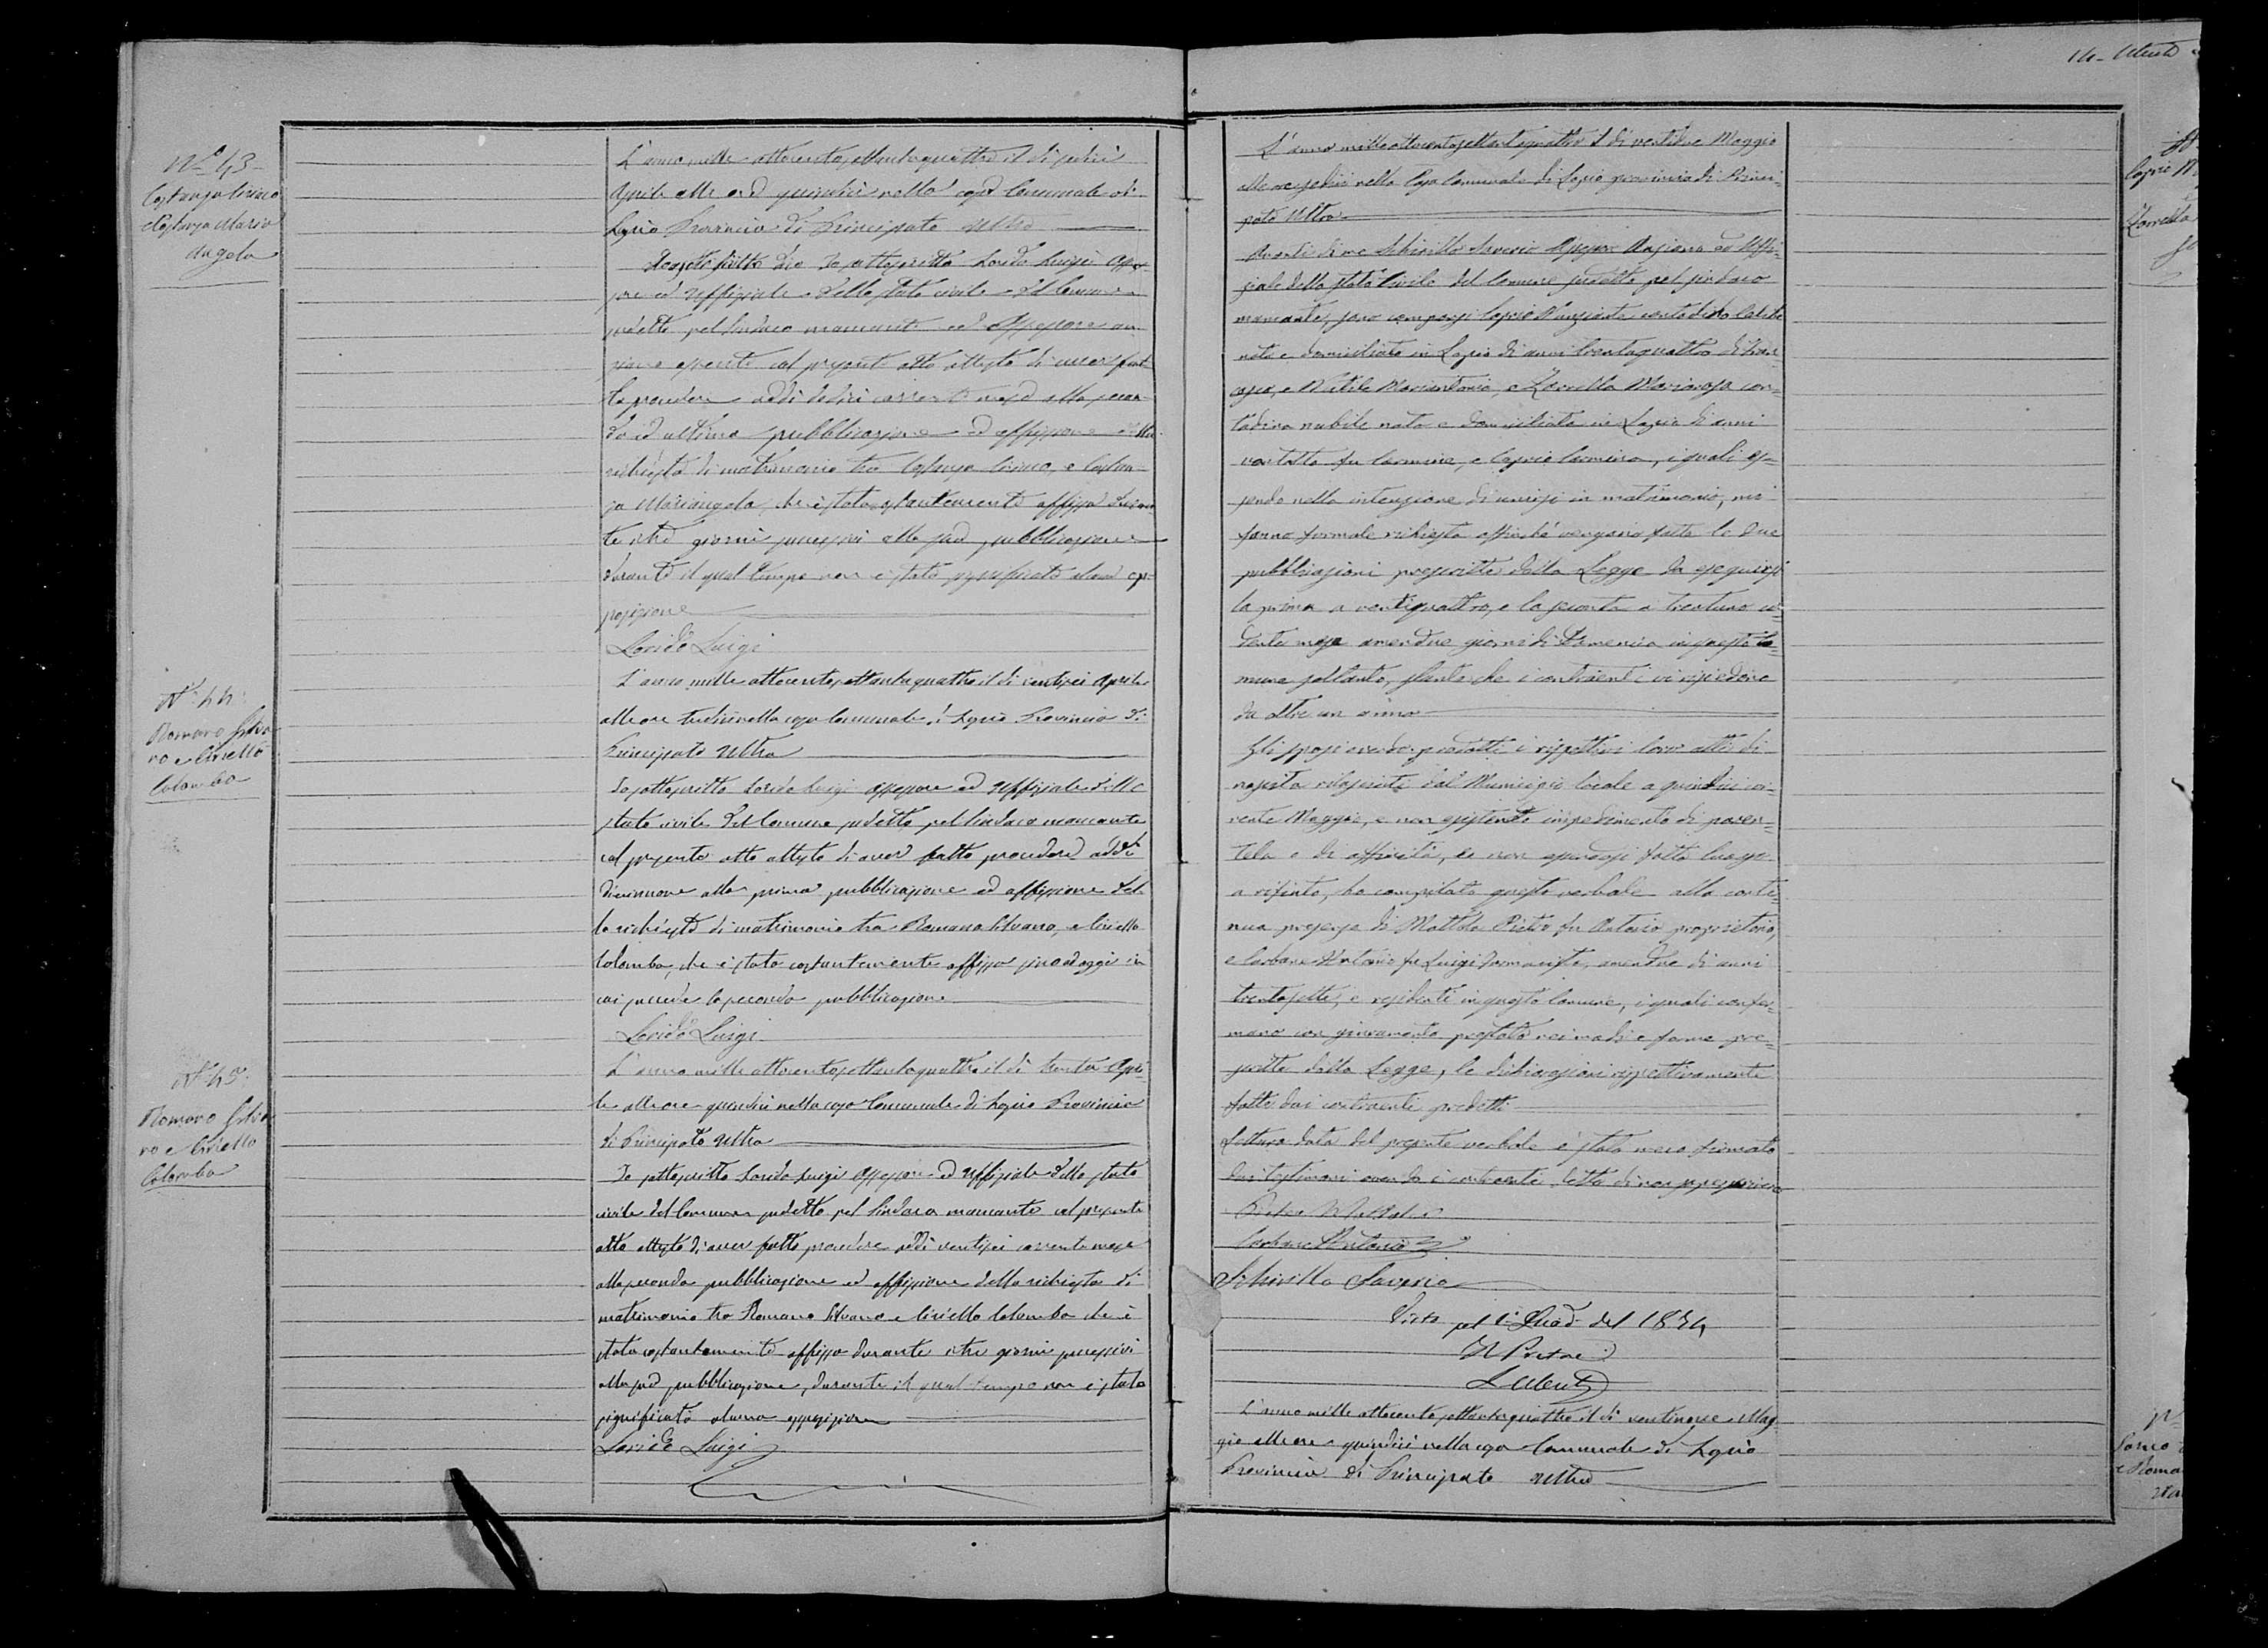 N.° 43
Costanza Ciriaco
e Costanza Maria
Angela
L'anno mille ottocento settantaquattro il dì sedici
Aprile alle ore quindici nella casa Comunale di
Lapio Provincia di Principato Ultra
Io sottoscritto Lorido Luigi Asses-
sore ed Uffiziale dello stato civile del Comune
sudetto pel Sindaco mancante ed Assessore an-
ziano col presente atto attesto di aver fat-
to procedere addì dodici corrente mese alla secon-
da ed ultima pubblicazione ed affissione della
richiesta di matrimonio tra Costanza Ciriaco, e Costan-
za Mariangela, che è stata costantemente affissa duran-
te i tre giorni successivi alla sud. pubblicazione
durante il qual tempo non è stata significata alcuna op-
posizione
Lorido Luigi
N.° 44.
Romano Silva-
no e Ciriello
Colomba
L'anno mille ottocento settantaquattro il dì ventisei Aprile
alle ore tredici nella casa Comunale di Lapio Provincia di
Principato Ultra
Io sottoscritto Lorido Luigi Assessore ed Uffiziale dello
stato civile del Comune sudetto pel Sindaco mancante
col presente atto attesto di aver fatto procedere addì
diciannove alla prima pubblicazione ed affissione del-
la richiesta di matrimonio tra Romano Silvano, e Ciriello
Colomba, che è stata costantemente affissa sino ad oggi in
cui succede la seconda pubblicazione
Lorido Luigi
N.° 45.
Romano Silva-
no e Ciriello
Colomba
L'anno mille ottocento settantaquattro il dì trenta Apri-
le alle ore quindici nella casa Comunale di Lapio Provincia
di Principato Ultra
Io sottoscritto Lorido Luigi Assessore ed Uffiziale dello stato
civile del Comune sudetto pel Sindaco mancante col presente
atto attesto di aver fatto procedere addì ventisei corrente mese
alla seconda pubblicazione ed affissione della richiesta di
matrimonio tra Romano Silvano e Ciriello Colomba che è
stata costantemente affissa durante i tre giorni successivi
alla sud. pubblicazione, durante il qual tempo non è stata
significata alcuna opposizione
Lorido Luigi
14-
L'anno mille ottocento settantaquattro il dì ventidue Maggio
alle ore sedici nella Casa Comunale di Lapio provincia di Princi-
pato Ultra
Avanti di me Schirillo Saverio Assessore Anziano ed Uffi-
ziale dello stato Civile del Comune sudetto pel sindaco
mancante, sono comparsi Caprio Nunziante contadino celibe
nato e domiciliato in Lapio di anni trentaquattro di
e Mariantonia, e Zarrella Mariarosa con-
tadina nubile nata e domiciliata in Lapio di anni
ventotto fu Carmine, e Caprio Carmina, i quali es-
sendo nella intenzione di unirsi in matrimonio, mi
fanno formale richiesta affinché vengano fatte le due
pubblicazioni prescritte dalla Legge da eseguirsi
la prima a ventiquattro, e la seconda a trentuno co-
rrente mese amendue giorni di Domenica in questo Co-
mune soltanto, stante che i contraenti vi risiedono
da oltre un anno
Gli sposi avendo prodotti i rispettivi loro atti di
nascita rilasciati dal Municipio locale a quindici cor-
rente Maggio, e non esistendo impedimento di paren-
tela o di affinità, e non essendosi fatto luogo
a rifiuto, ho compilato questo verbale alla conti-
nua presenza di Mottola Pietro fu Antonio proprietario,
e Carbone Antonio fu Luigi farmacista, amendue di anni
trentasette, e residenti in questo Comune, i quali confer-
mano con giuramento prestato nei modi e forme pre-
scritte dalla Legge, le dichiarazioni rispettivamente
fatte dai contraenti predetti
Lettura data del presente verbale è stato meco firmato
dai testimoni avendo i contraenti detto di non sapere scrivere
Pietro Mottola
Carbone Antonio
Schirillo Saverio
Visto pel 1° Quad. del 1874
Il Pretore
L'anno mille ottocento settantaquattro il dì ventinove Mag-
gio alle ore quindici nella casa Comunale di Lapio
Provincia di Principato Ultra
Caprio N
Zarrella
e Roma